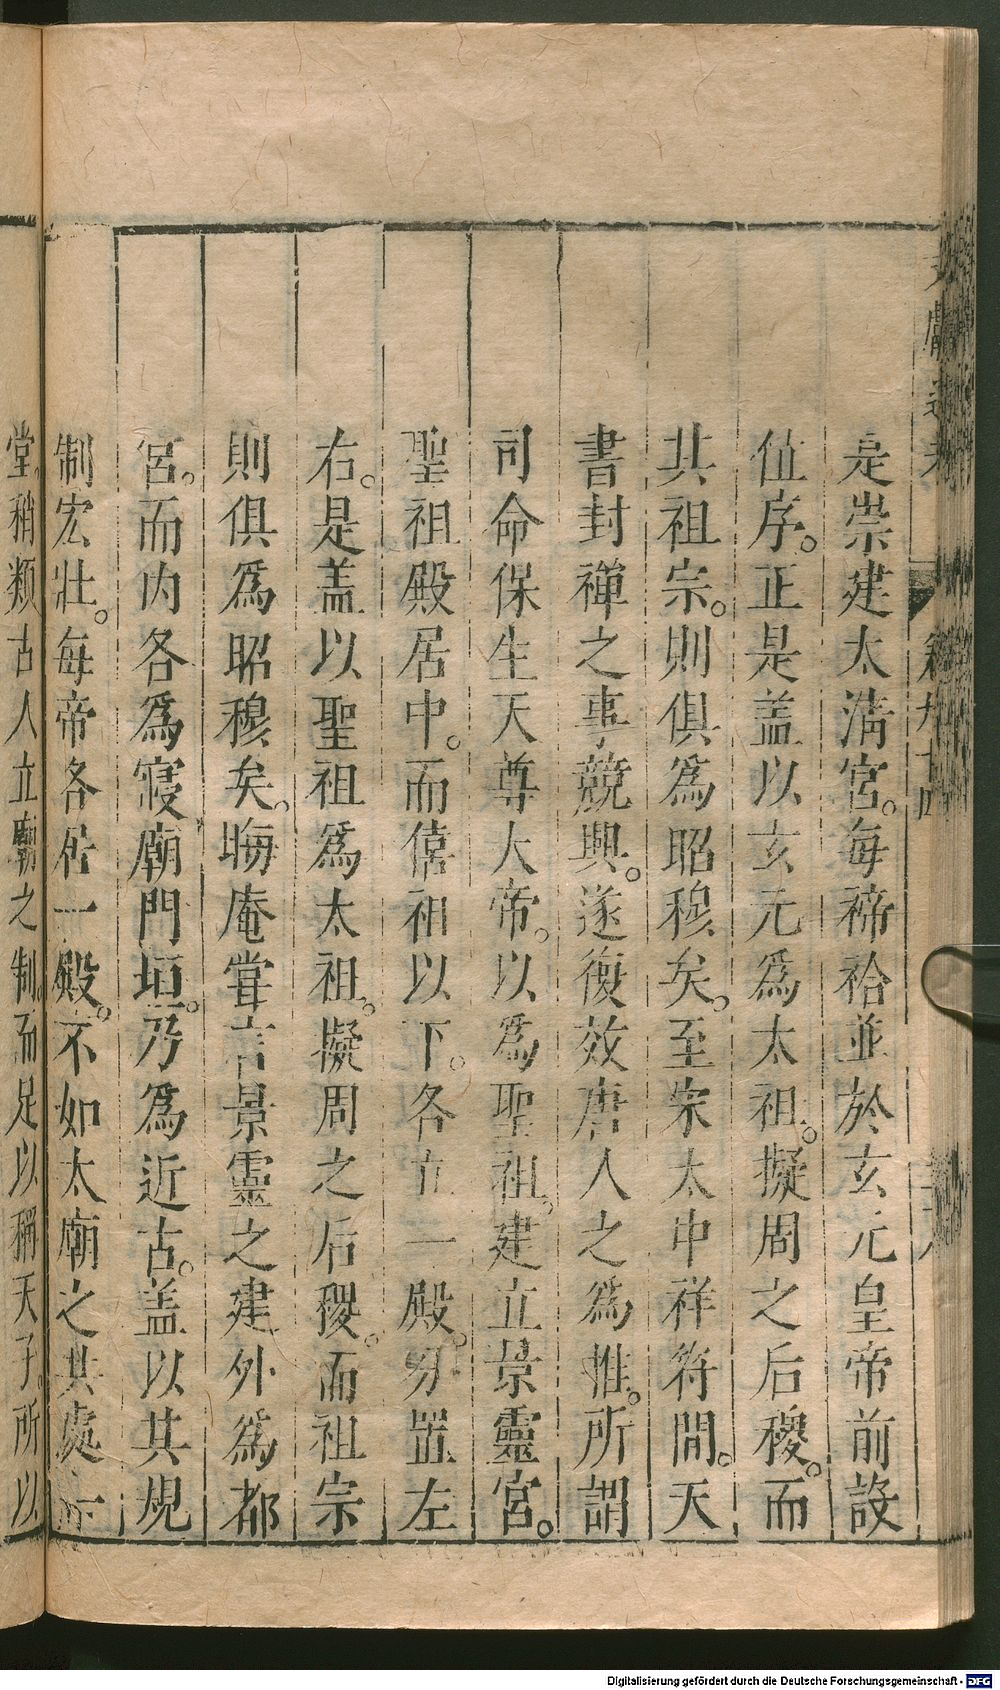 是崇建太淸宮。每禘祫並於玄元皇帝前設
位序。正是盖以玄元爲太祖。擬周之后稷。而
其祖宗。則俱爲昭穆矣。至宋太中祥符間。天
書封禪之事競興。遂復效唐人之爲惟。所謂
司命保生天尊大帝。以爲聖祖。建立景靈宮。
聖祖殿居中。而僖祖以下。各立一殿。分置左
右。是盖以聖祖爲太祖。擬周之后稷。而祖宗
則俱爲昭穆矣。晦庵甞言景靈之建外爲都
宮。而内各爲寢廟門垣。乃爲近古。盖以其規
制宏壯。每帝各居一殿。不如太廟之共處一
堂。稍類古人立廟之制。而足以稱天子。所以
卷九十四
Digitalisierung gefördert durch die Deutsche Forschungsgemeinschaft - DFG